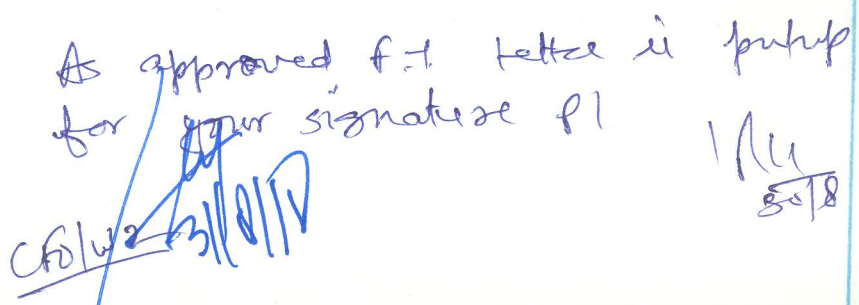 As approved f.t letter is putup
for your signature pl
30/8
CFO/W2
31/8/1